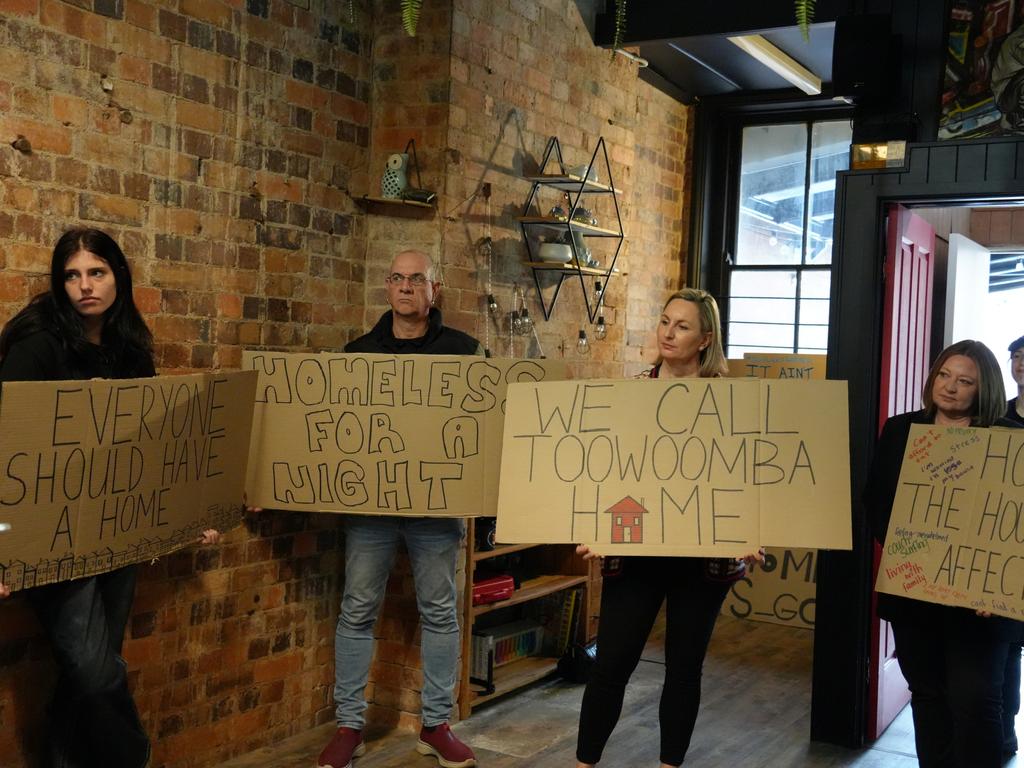 EVERYONE
SHOULD HAVE
A HOME
HOMELESS
FOR A
NIGHT
WE CALL
TOOWOOMBA
H ME
IT AINT
OM
S_GO
HO
THE HOU
AFFEC
Can't
afford to
eat
stress
I'm
in
my
couch
surfing
living
with
family
cant find a